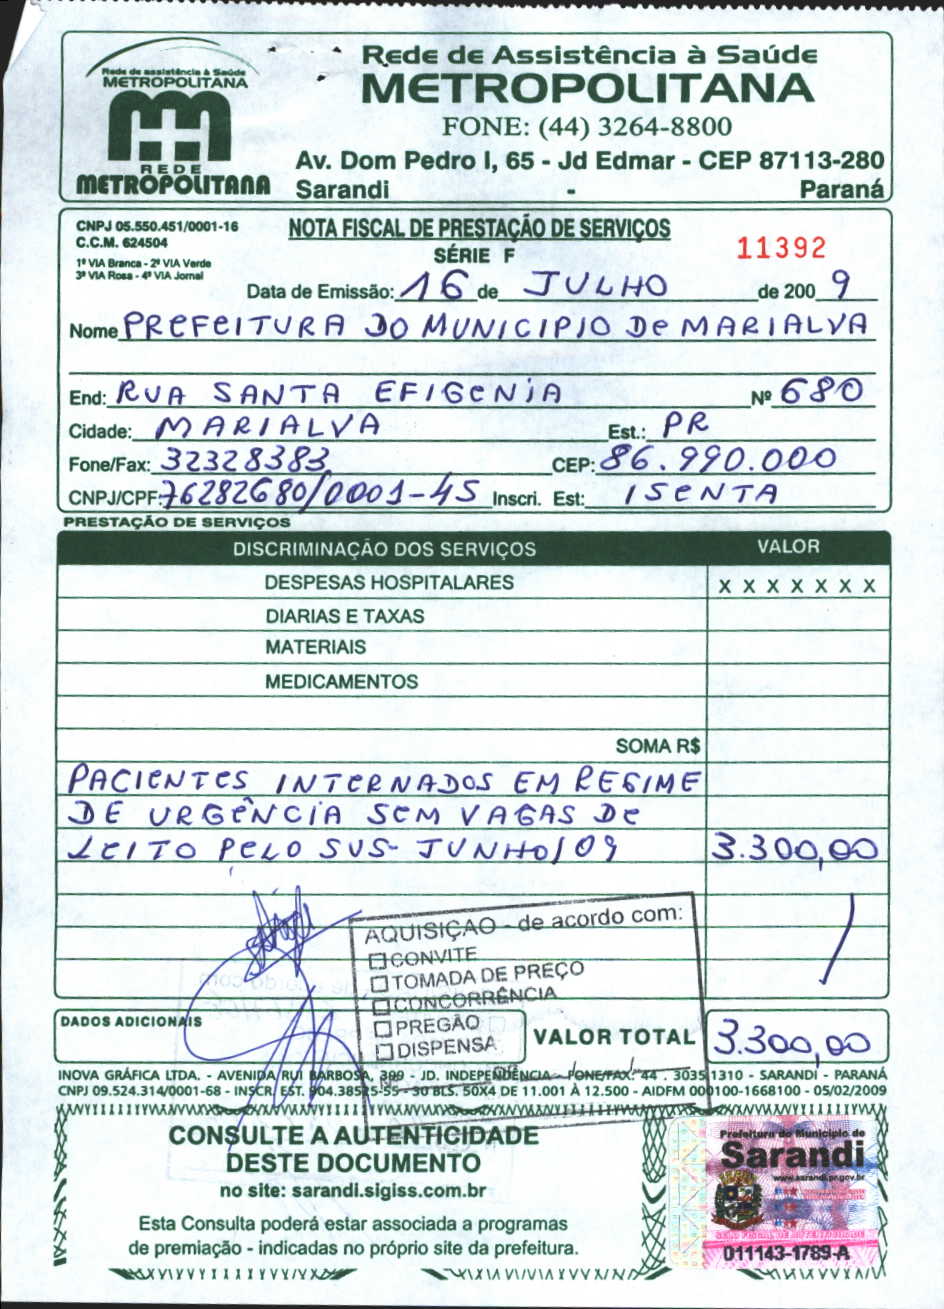 Rede de Assistência à Saúde
METROPOLITANA
REDE
METROPOLITANA
Rede de Assistência à Saúde
METROPOLITANA
FONE: (44) 3264-8800
Av. Dom Pedro I, 65 - Jd Edmar - CEP 87113-280
Sarandi - Paraná
CNPJ 05.550.451/0001-16
C.C.M. 624504
1ª VIA Branca - 2ª VIA Verde
3ª VIA Rosa - 4ª VIA Jornal
NOTA FISCAL DE PRESTAÇÃO DE SERVIÇOS
SÉRIE F
11392
Data de Emissão: 16 de JULHO de 2009
Nome PREFEITURA DO MUNICIPIO DE MARIALVA
End: RUA SANTA EFIGENIA Nº 680
Cidade: MARIALVA Est.: PR
Fone/Fax: 32328383 CEP: 86.990.000
CNPJ/CPF: 76282680/0001-45 Inscri. Est: ISENTA
PRESTAÇÃO DE SERVIÇOS
DISCRIMINAÇÃO DOS SERVIÇOS VALOR
DESPESAS HOSPITALARES X X X X X X X
DIARIAS E TAXAS
MATERIAIS
MEDICAMENTOS
SOMA R$
PACIENTES INTERNADOS EM REGIME
DE URGÊNCIA SEM VAGAS DE
LEITO PELO SUS- JUNHO/09 3.300,00
AQUISIÇÃO - de acordo com:
CONVITE
TOMADA DE PREÇO
CONCORRÊNCIA
PREGÃO
DISPENSA
DADOS ADICIONAIS
VALOR TOTAL 3.300,00
INOVA GRÁFICA LTDA. - AVENIDA RUI BARBOSA, 399 - JD. INDEPENDÊNCIA - FONE/FAX: 44 . 3035 1310 - SARANDI - PARANÁ
CNPJ 09.524.314/0001-68 - INSCR. EST. - 30 BLS. 50X4 DE 11.001 À 12.500 - AIDFM 000100-1668100 - 05/02/2009
CONSULTE A AUTENTICIDADE
DESTE DOCUMENTO
no site: sarandi.sigiss.com.br
Esta Consulta poderá estar associada a programas
de premiação - indicadas no próprio site da prefeitura.
Prefeitura do Município de
Sarandi
www.sarandi.pr.gov.br
SELO FISCAL DE AUTENTICIDADE
011143-1789-A